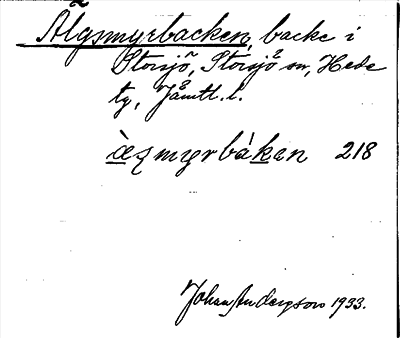 Älgsmyrbacken, backe i
Storsjö, Storsjö sn, Hede
tg, Jämtl. l.
àȥmyrbàkan 218
Johan Anderzson 1933.